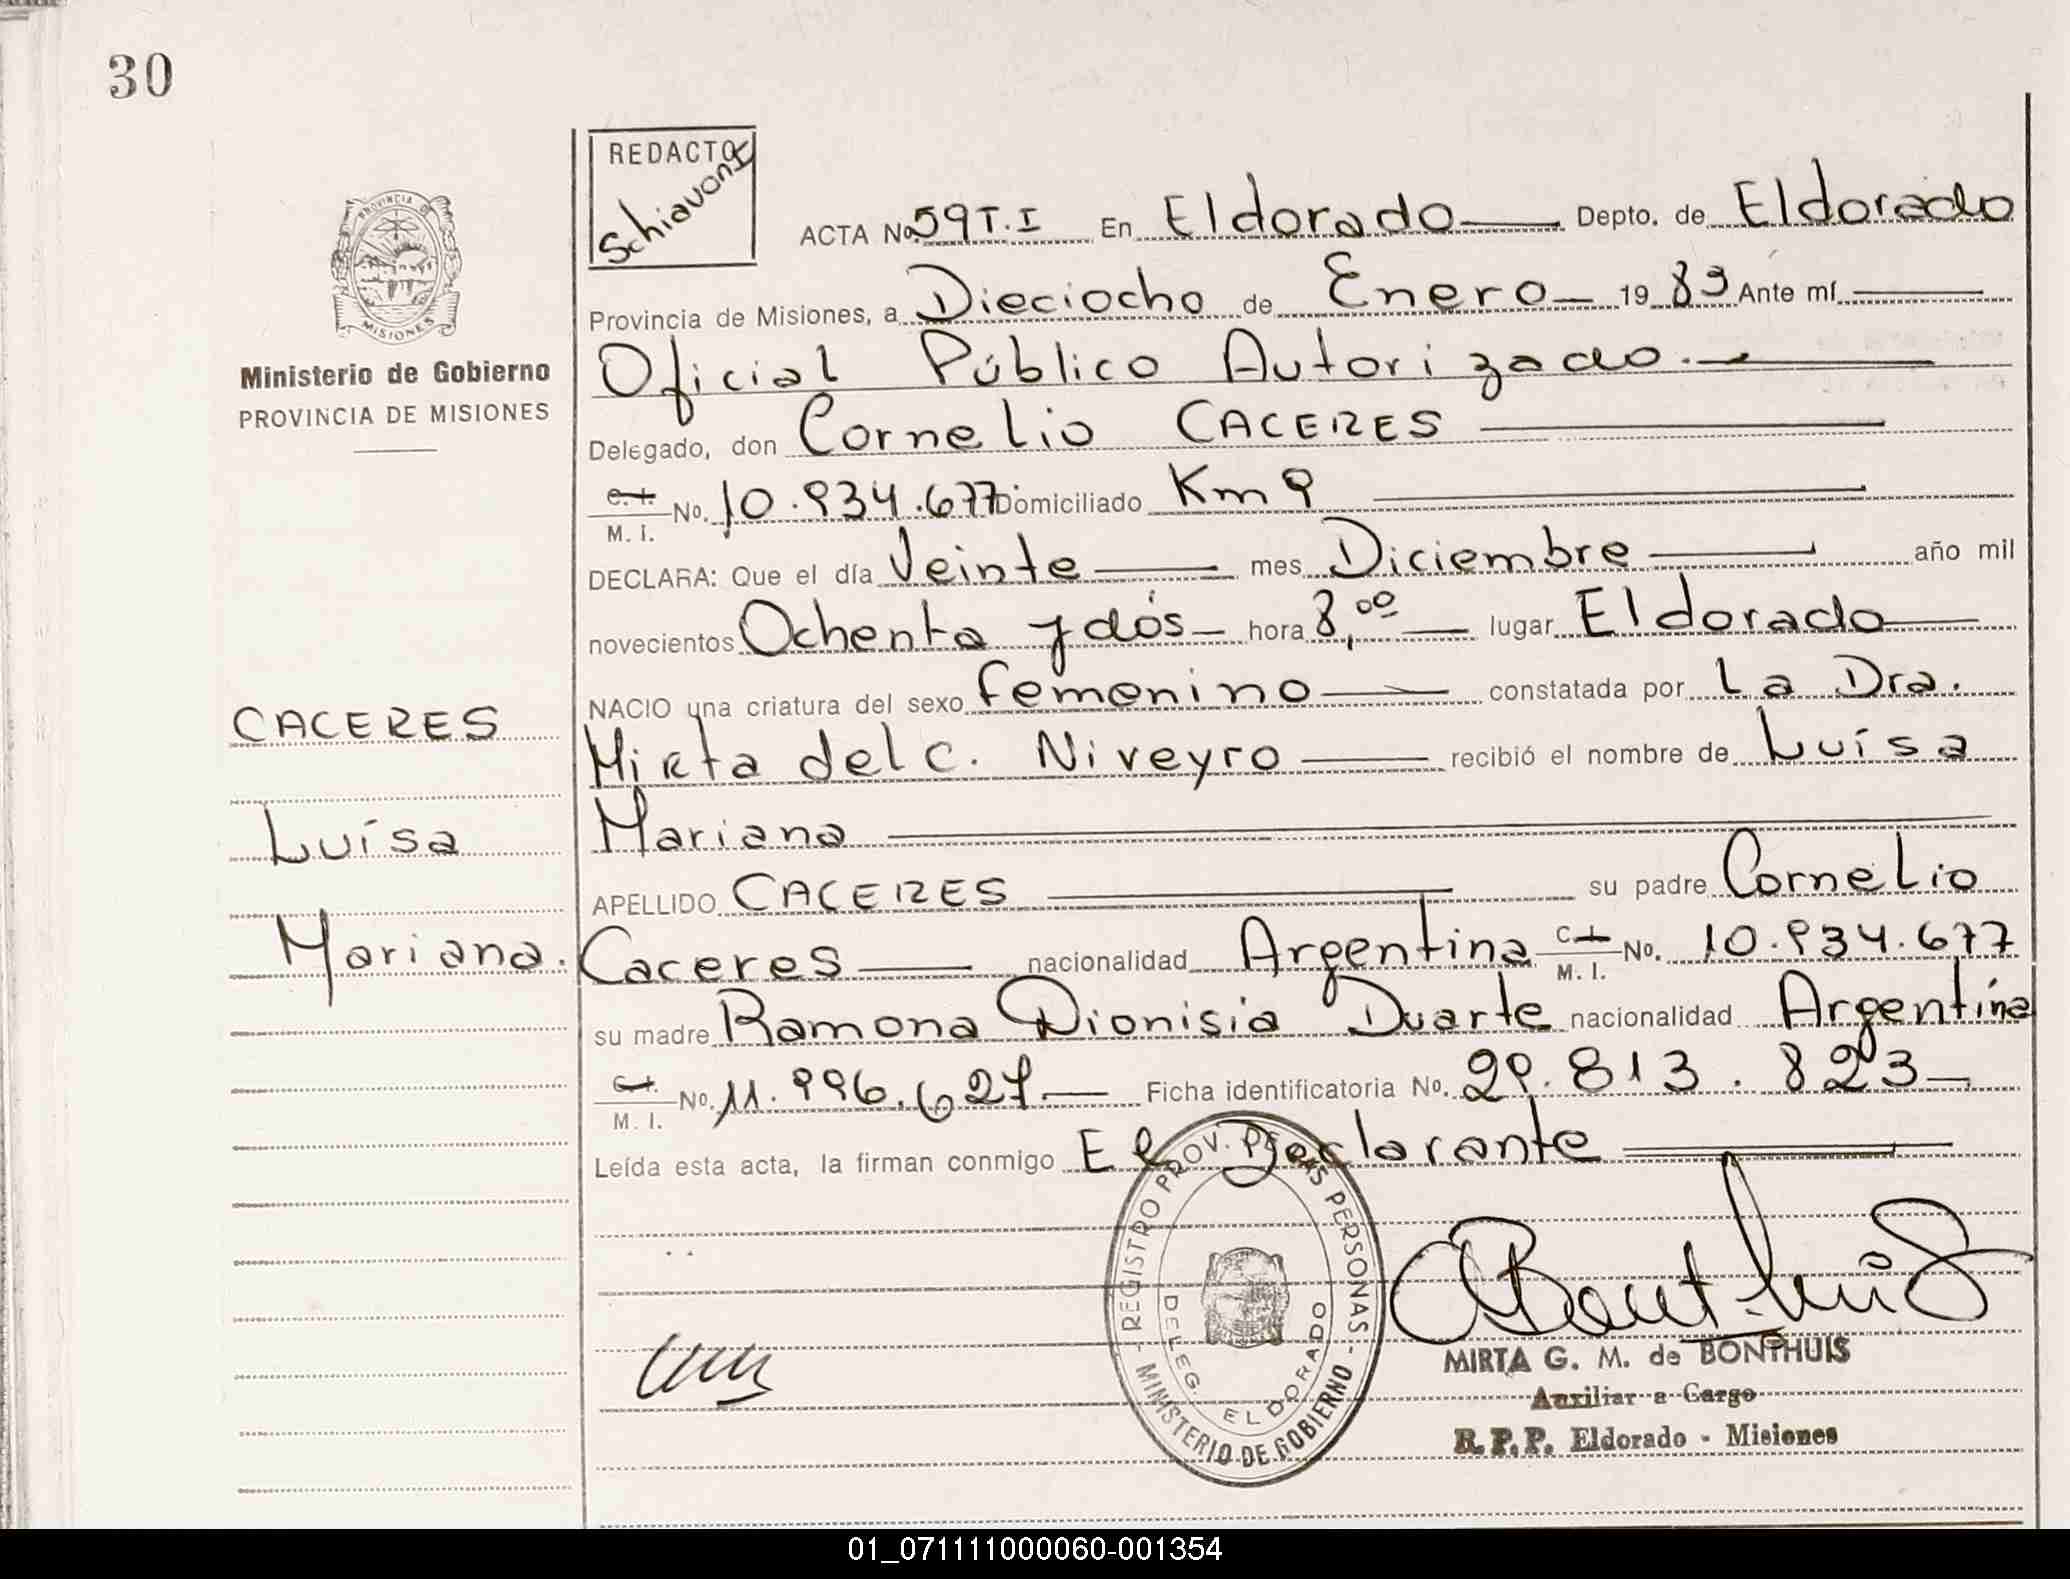 30
REDACTO
Schiavoni
PROVINCIA DE
MISIONES
Ministerio de Gobierno
PROVINCIA DE MISIONES
ACTA No. 59 T.I En Eldorado Depto. de Eldorado
Provincia de Misiones, a Dieciocho de Enero 19 83 Ante mí
Oficial Público Autorizado.
Delegado, don Cornelio CACERES
C.I. M.I. No. 10.934.677 Domiciliado Km 9
DECLARA: Que el día Veinte mes Diciembre año mil
novecientos Ochenta y dós hora 8,00 lugar Eldorado
NACIO una criatura del sexo femenino constatada por La Dra.
Mirta del C. Niveyro recibió el nombre de Luísa
Mariana
APELLIDO CACERES su padre Cornelio
Caceres nacionalidad Argentina C.I. M.I. No. 10.934.677
su madre Ramona Dionisia Duarte nacionalidad Argentína
C.I. M.I. No. 11.996.627 Ficha identificatoria No. 29.813.823
Leída esta acta, la firman conmigo El Declarante
CACERES
Luísa
Mariana.
REGISTRO PROV. DE LAS PERSONAS
MINISTERIO DE GOBIERNO
DELEG. ELDORADO
MIRTA G. M. de BONTHUIS
Auxiliar a Cargo
R.P.P. Eldorado - Misiones
01_071111000060-001354